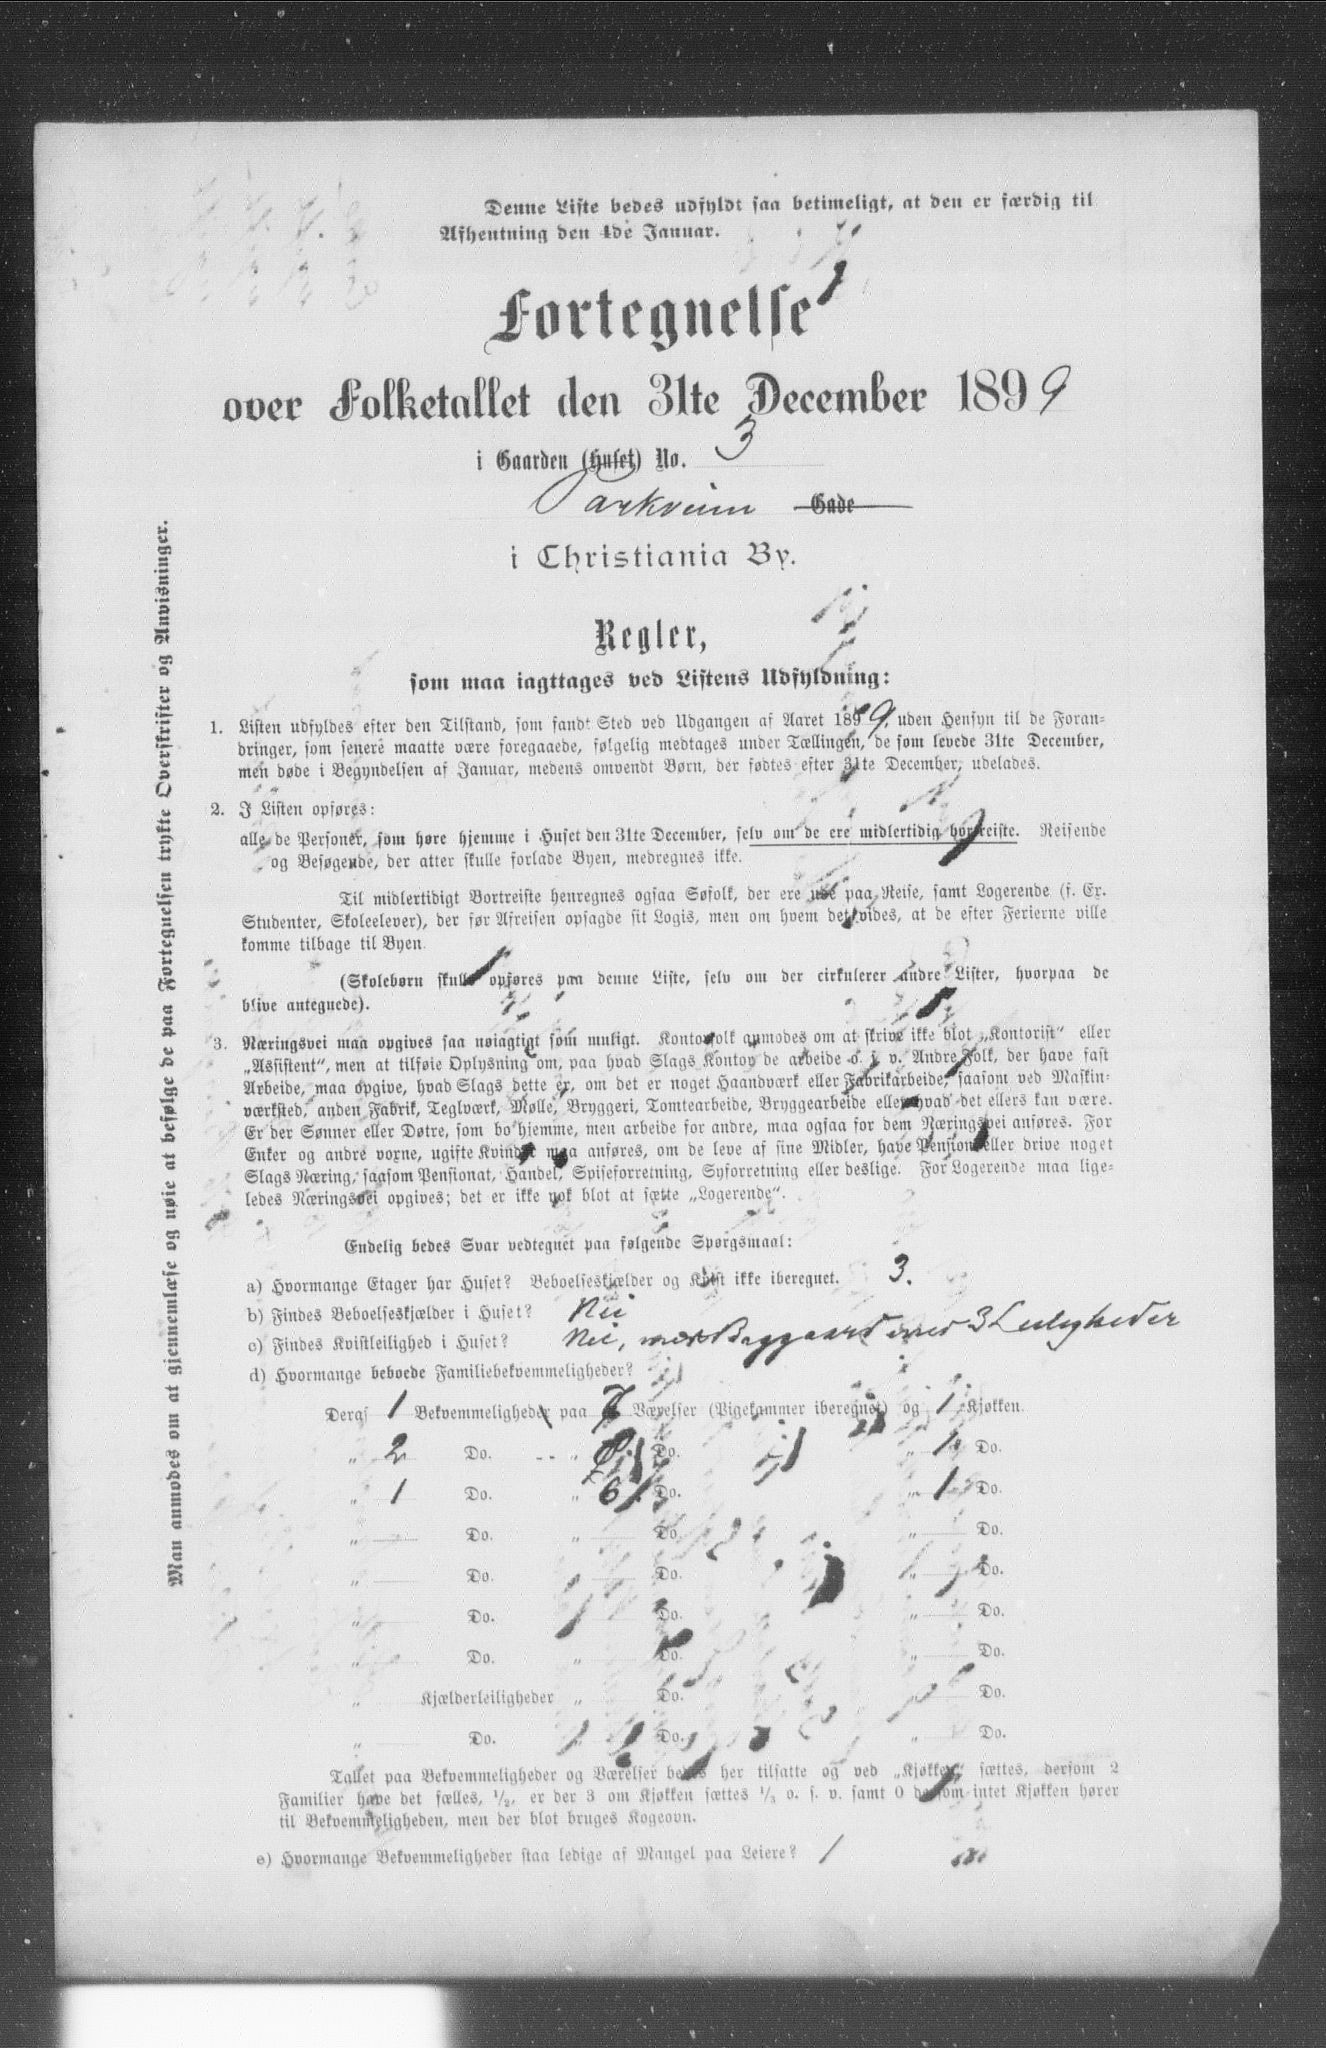 Denne Liste bedes udfyldt saa betimeligt, at den er færdig til
Afhentning den 4de Januar.
Fortegnelse
over Folketallet den 31te December 1899
i Gaarden (Huset) No. 3
Parkveien Gade
i Christiania By.
Regler,
som maa iagttages ved Listens Udfyldning:
1. Listen udfyldes efter den Tilstand, som fandt Sted ved Udgangen af Aaret 1899, uden Hensyn til de Foran-
dringer, som senere maatte være foregaaede, følgelig medtages under Tællingen, de som levede 31te December,
men døde i Begyndelsen af Januar, medens omvendt Børn, der fødtes efter 31te December, udelades.
2. I Listen opføres:
alle de Personer, som høre hjemme i Huset den 31te December, selv om de ere midlertidig bortreiste. Reisende
og Besøgende, der atter skulle forlade Byen, medregnes ikke.
Til midlertidigt Bortreiste henregnes ogsaa Søfolk, der ere ude paa Reise, samt Logerende (f. Ex.
Studenter, Skoleelever), der før Afreisen opsagde sit Logis, men om hvem det vides, at de efter Ferierne ville
komme tilbage til Byen.
(Skolebørn skulle opføres paa denne Liste, selv om der cirkulerer andre Lister, hvorpaa de
blive antegnede).
3. Næringsvei maa opgives saa nøiagtigt som muligt. Kontorfolk anmodes om at skrive ikke blot „Kontorist“ eller
„Assistent“, men at tilføie Oplysning om, paa hvad Slags Kontor de arbeide o. s. v. Andre Folk, der have fast
Arbeide, maa opgive, hvad Slags dette er, om det er noget Haandværk eller Fabrikarbeide, saasom ved Maskin-
værksted, anden Fabrik, Teglværk, Mølle, Bryggeri, Tomtearbeide, Bryggearbeide eller hvad det ellers kan være.
Er der Sønner eller Døtre, som bo hjemme, men arbeide for andre, maa ogsaa for dem Næringsvei anføres. For
Enker og andre voxne, ugifte Kvinder maa anføres, om de leve af sine Midler, have Pension eller drive noget
Slags Næring, saasom Pensionat, Handel, Spiseforretning, Syforretning eller deslige. For Logerende maa lige-
ledes Næringsvei opgives; det er ikke nok blot at sætte „Logerende“.
Endelig bedes Svar vedtegnet paa følgende Spørgsmaal:
a) Hvormange Etager har Huset? Beboelseskjælder og Kvist ikke iberegnet. 3.
b) Findes Beboelseskjælder i Huset? Nei
c) Findes Kvistleilighed i Huset? Nei, men Baggaard med 3 Leiligheder
d) Hvormange beboede Familiebekvemmeligheder?
Deraf 1 Bekvemmeligheder paa 7 Værelser (Pigekammer iberegnet) og 1 Kjøkken.
„ 2 Do. „ Do. „ 1 Do.
„ 1 Do. „ 6 Do. „ 1 Do.
„ Do. „ Do. „ Do.
„ Do. „ Do. „ Do.
„ Do. „ Do. „ Do.
„ Do. „ Do. „ Do.
„ Kjælderleiligheder „ Do. „ Do.
„ Do. „ Do. „ Do.
Tallet paa Bekvemmeligheder og Værelser bedes her tilsatte og ved „Kjøkken“ sættes, dersom 2
Familier have det fælles, 1/2, er der 3 om Kjøkken sættes 1/3 o. s. v. samt 0 dersom intet Kjøkken hører
til Bekvemmeligheden, men der blot bruges Kogeovn.
e) Hvormange Bekvemmeligheder staa ledige af Mangel paa Leiere? 1
Man anmodes om at gjennemlæse og nøie at befølge de paa Fortegnelsen trykte Overskrifter og Anvisninger.